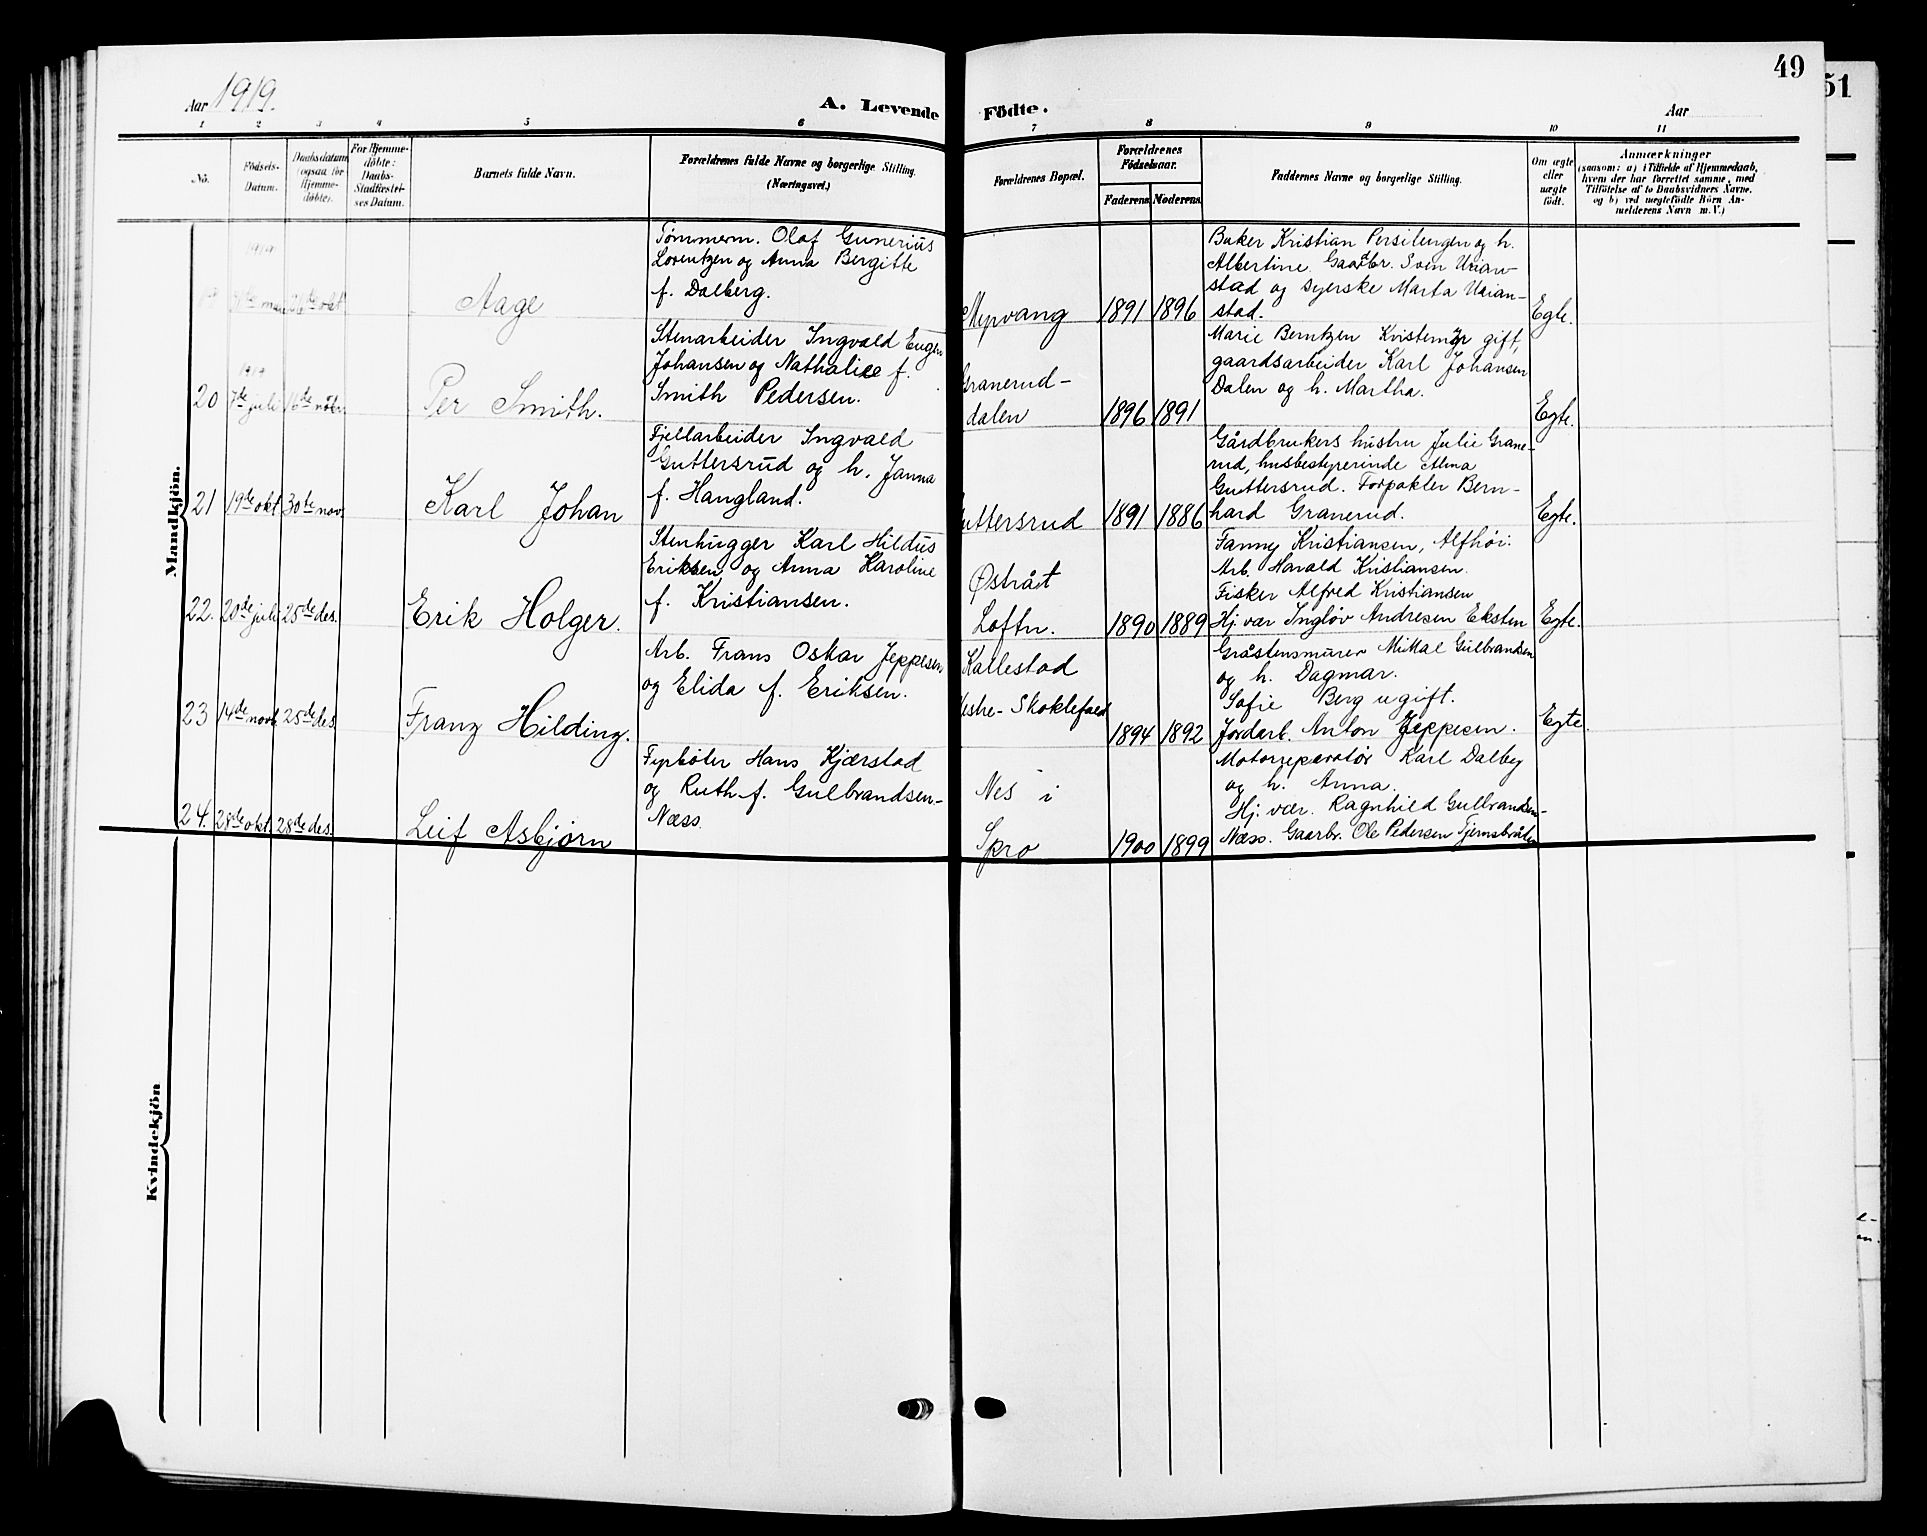 49
51
Aar 1919.
A. Levende Födte.
Aar
1 2 3 4 5 6 7 8 9 10 11
No.
Födsels-
Datum.
Daabsdatum
(ogsaa for
Hjemme-
døbte).
For Hjemme-
døbte:
Daabs-
Stadfæstel-
ses Datum.
Barnets fulde Navn.
Forældrenes fulde Navne og borgerlige Stilling.
(Næringsvei.)
Forældrenes Bopæl.
Forældrenes
Födselsaar.
Faderens Moderens
Faddernes Navne og borgerlige Stilling.
Om ægte
eller
uægte
født.
Anmærkninger
(saasom: a) i Tilfælde af Hjemmedaab,
hvem der har forrettet samme, med
Tilföielse af to Daabsvidners Navne.
og b) ved uægtefødte Börn An-
melderens Navn m. V.)
Mandkjön.
1919
26de okt
Aage
Tømmerm. Olaf Gunerius
Lorentzen og Anna Bergitte
f. Dalberg.
Myrvang
1891 1896
Baker Kristian Persilengen og h.
Albertine. Gaardbr. Sven Urian-
stad og syerske Marta Urian-
stad.
Egte.
1919
20 7de juli 16de novbr.
Per Smith.
Stenarbeider Ingvald Eugen
Johansen og Nathalie f.
Smith Pedersen.
Granerud-
dalen
1896 1891
Marie Berntzen Kvistemyr gift,
gaardsarbeider Karl Johansen
Dalen og h. Martha.
Egte.
21 19de okt 30te nov.
Karl Johan
Fjellarbeider Ingvald
Guttersrud og h. Janna
f. Haugland.
Guttersrud
1891 1886
Gårdbrukers hustru Julie Grane-
rud, husbestyrerinde Alma
Guttersrud. Forpakter Bern-
hard Granerud.
Egte.
22. 20de juli 25de des.
Erik Holger.
Stenhugger Karl Hildus
Eriksen og Anna Karoline
f. Kristiansen.
Østråt
Loftn.
1890 1889
Fanny Kristiansen, Alfhöi.
Arb. Harald Kristiansen.
Fisker Alfred Kristiansen
Hj. vær Ingløv Andresen Eksten
Egte.
23 14de novb. 25de des.
Franz Hilding.
Arb. Frans Oskar Jeppesen
og Elida f. Eriksen.
Kallestad
Vestre-Skoklefald
1894 1892
Gråstensmurer Mikkal Gulbrandsen
og h. Dagmar.
Sofie Berg ugift.
Jordarb. Anton Jeppesen.
Egte.
24. 28de okt 28de des.
Leif Asbjørn
Fyrbøter Hans Kjærstad
og Ruth f. Gulbrandsen-
Næss.
Nes i
Spro
1900 1899
Motorreparatør Karl Dalby
og h. Anna.
Hj. vær. Ragnhild Gulbrandsen-
Næss. Gaarbr. Ole Pedersen Tjernsbråten
Kvindekjön